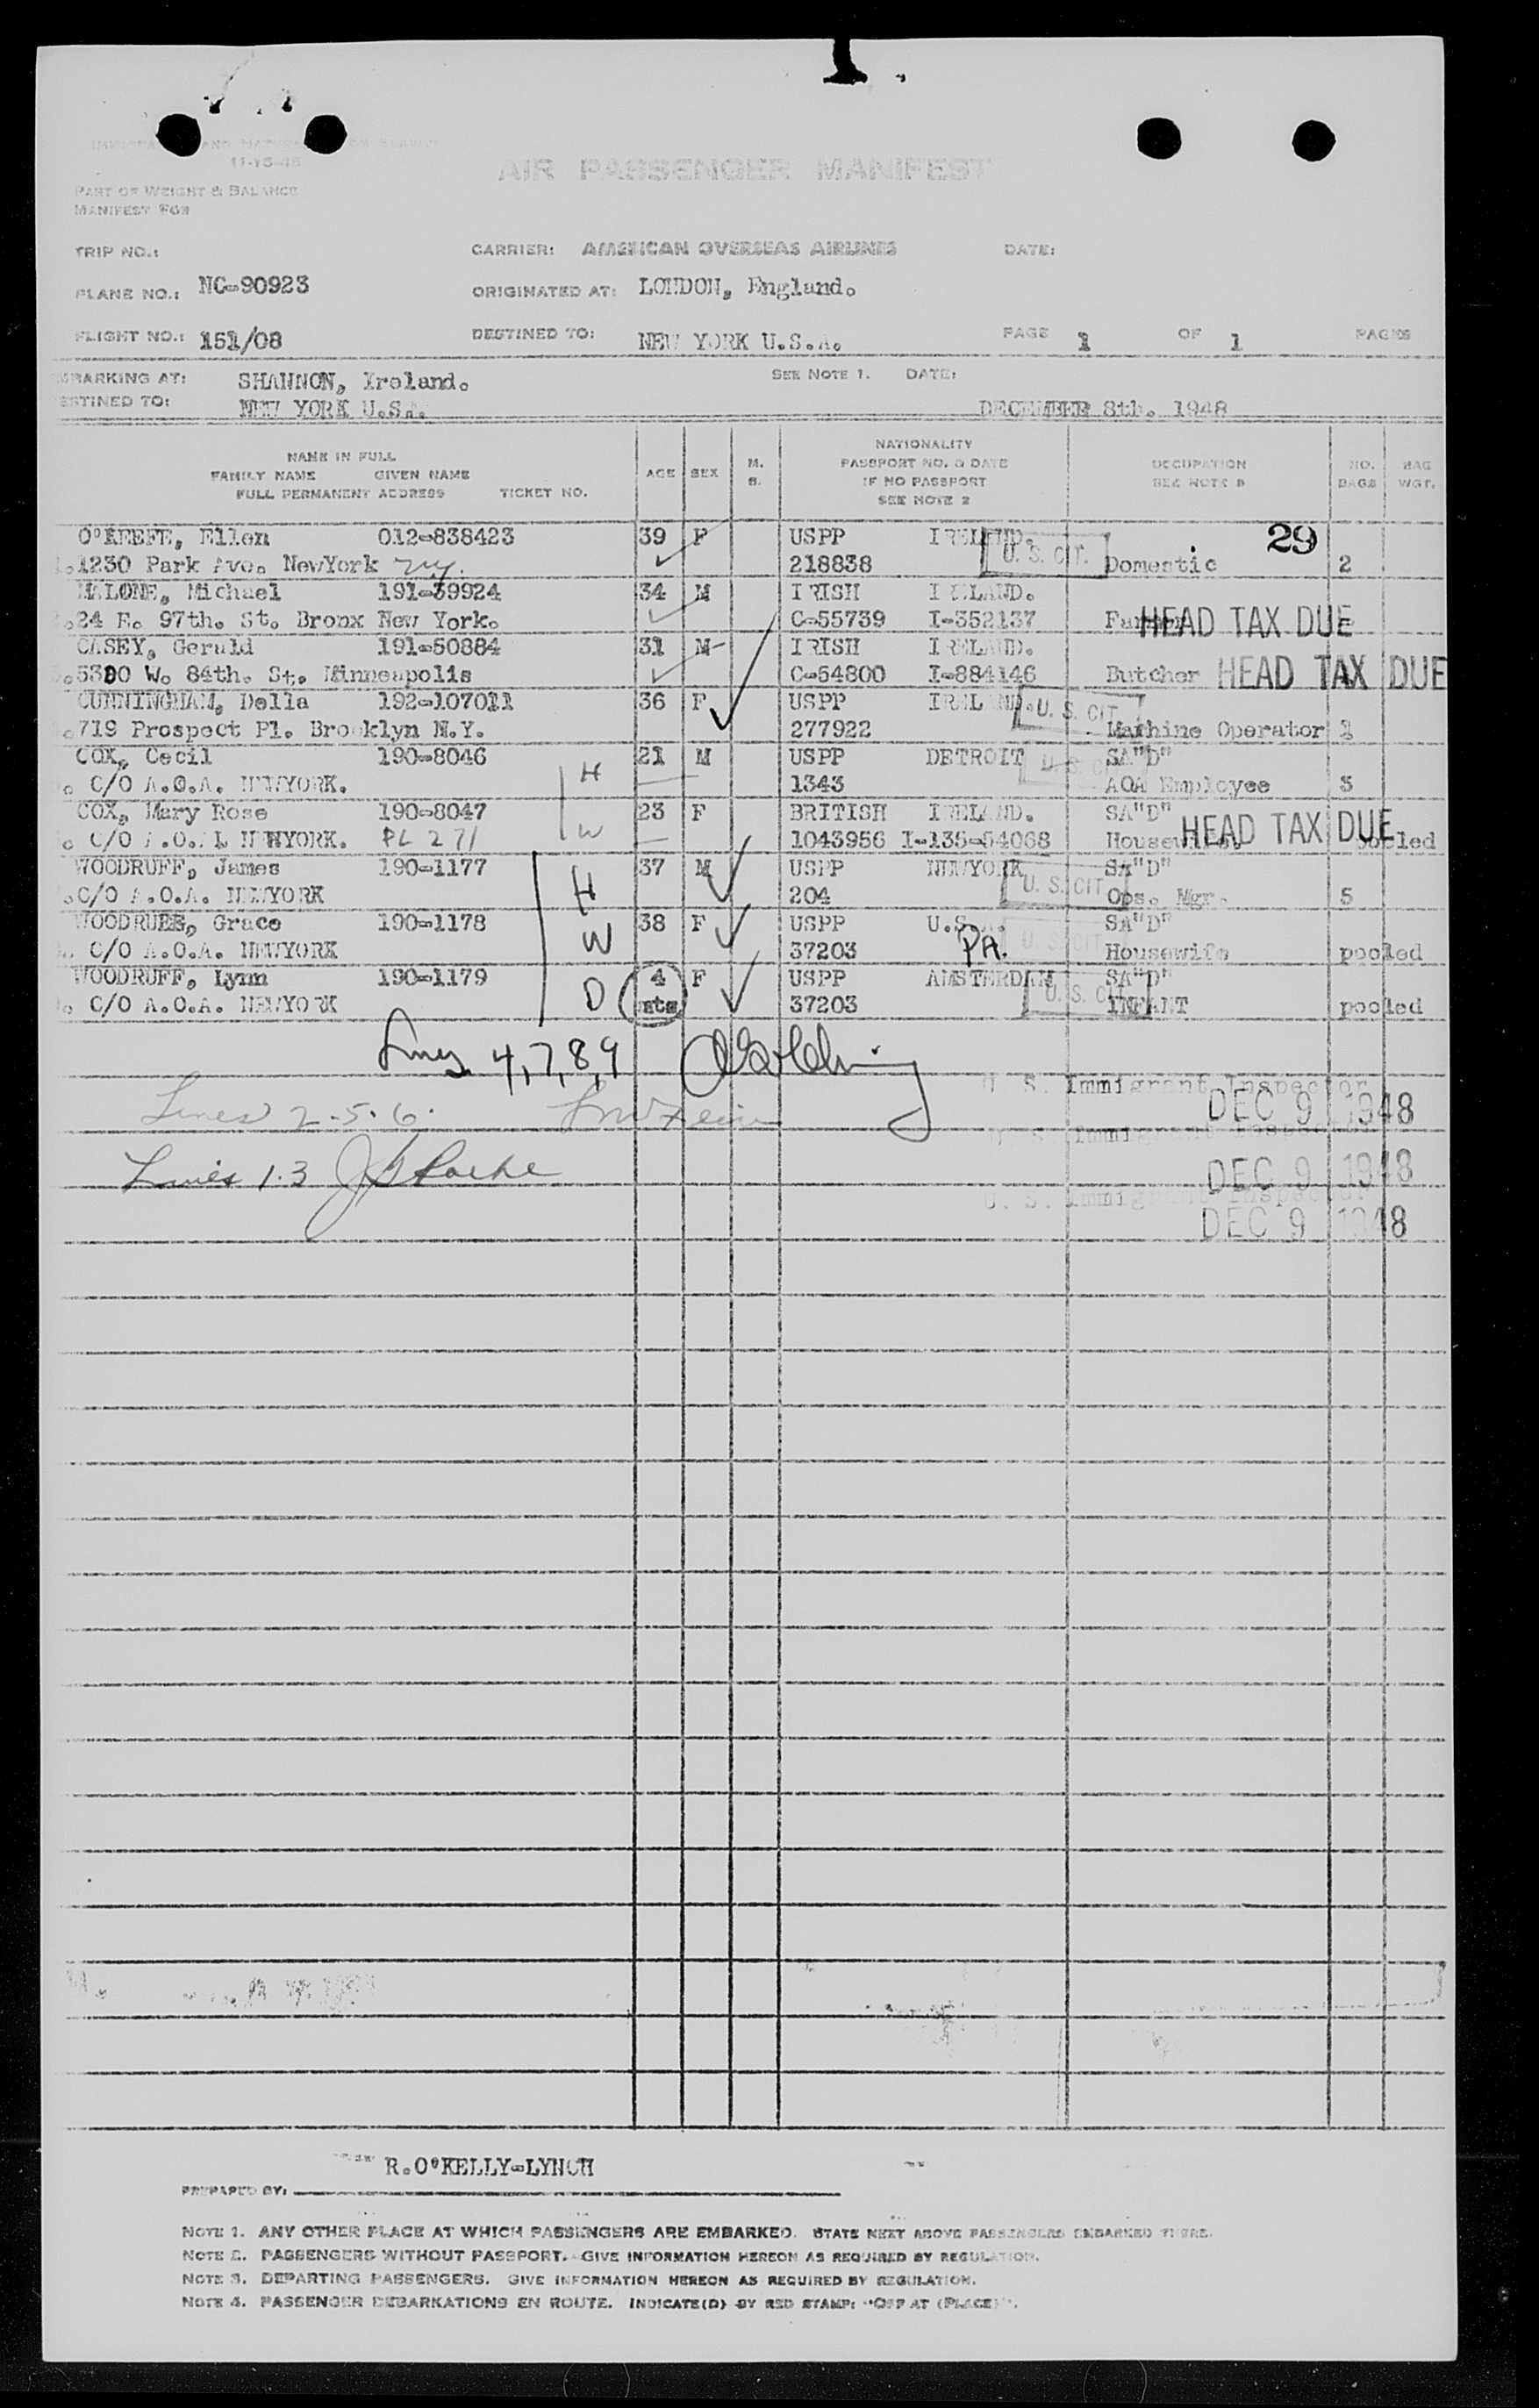 11-15-46
AIR PASSENGER MANIFEST
PART OF WEIGHT & BALANCE
MANIFEST FOR
TRIP NO.: CARRIER: AMERICAN OVERSEAS AIRLINES DATE:
PLANE NO.: NC-90923 ORIGINATED AT: LONDON, England.
FLIGHT NO.: 151/08 DESTINED TO: NEW YORK U.S.A. PAGE 1 OF 1 PAGES
EMBARKING AT: SHANNON, Ireland. SEE NOTE 1. DATE:
DESTINED TO: NEW YORK U.S.A. DECEMBER 8th. 1948
NAME IN FULL
FAMILY NAME GIVEN NAME
FULL PERMANENT ADDRESS TICKET NO.
AGE SEX M. S.
NATIONALITY
PASSPORT NO. & DATE
IF NO PASSPORT
SEE NOTE 2
OCCUPATION
SEE NOTE 3
NO. BAGS
BAG WGT.
O'KEEFE, Ellen 012-838423 39 F USPP IRELAND. U. S. CIT. 29
1230 Park Ave. NewYork N.Y. 218838 Domestic 2
MALONE, Michael 191-39924 34 M IRISH IRELAND.
24 E. 97th. St. Bronx New York. C-55739 I-352137 Farmer HEAD TAX DUE
CASEY, Gerald 191-50884 31 M IRISH IRELAND.
5300 W. 84th. St. Minneapolis C-54800 I-884146 Butcher HEAD TAX DUE
CUNNINGHAM, Della 192-107011 36 F USPP IRELAND. U. S. CIT
719 Prospect Pl. Brooklyn N.Y. 277922 Machine Operator 1
COX, Cecil 190-8046 H 21 M USPP DETROIT U. S. CIT SA"D"
C/O A.O.A. NEWYORK. 1343 AOA Employee 3
COX, Mary Rose 190-8047 23 F BRITISH IRELAND. SA"D"
C/O A.O.A. NEWYORK. PL 271 W 1043956 I-135-54068 Housewife HEAD TAX DUE pooled
WOODRUFF, James 190-1177 H 37 M USPP NEWYORK U. S. CIT SA"D"
C/O A.O.A. NEWYORK 204 Ops. Mgr. 5
WOODRUFF, Grace 190-1178 W 38 F USPP U.S.A. U. S. CIT SA"D"
C/O A.O.A. NEWYORK 37203 PA. Housewife pooled
WOODRUFF, Lynn 190-1179 D 4 F USPP AMSTERDAM U. S. CIT SA"D"
C/O A.O.A. NEWYORK mts 37203 INFANT pooled
Lines 4,7,8,9
U. S. Immigrant Inspector
Lines 2-5-6. DEC 9 1948
U. S. Immigrant Inspector
Lines 1-3 DEC 9 1948
U. S. Immigrant Inspector
DEC 9 1948
R.O'KELLY-LYNCH
PREPARED BY:
NOTE 1. ANY OTHER PLACE AT WHICH PASSENGERS ARE EMBARKED. STATE NEXT ABOVE PASSENGERS EMBARKED THERE.
NOTE 2. PASSENGERS WITHOUT PASSPORT. GIVE INFORMATION HEREON AS REQUIRED BY REGULATION.
NOTE 3. DEPARTING PASSENGERS. GIVE INFORMATION HEREON AS REQUIRED BY REGULATION.
NOTE 4. PASSENGER DEBARKATIONS EN ROUTE. INDICATE(D) BY RED STAMP: "OFF AT (PLACE)".